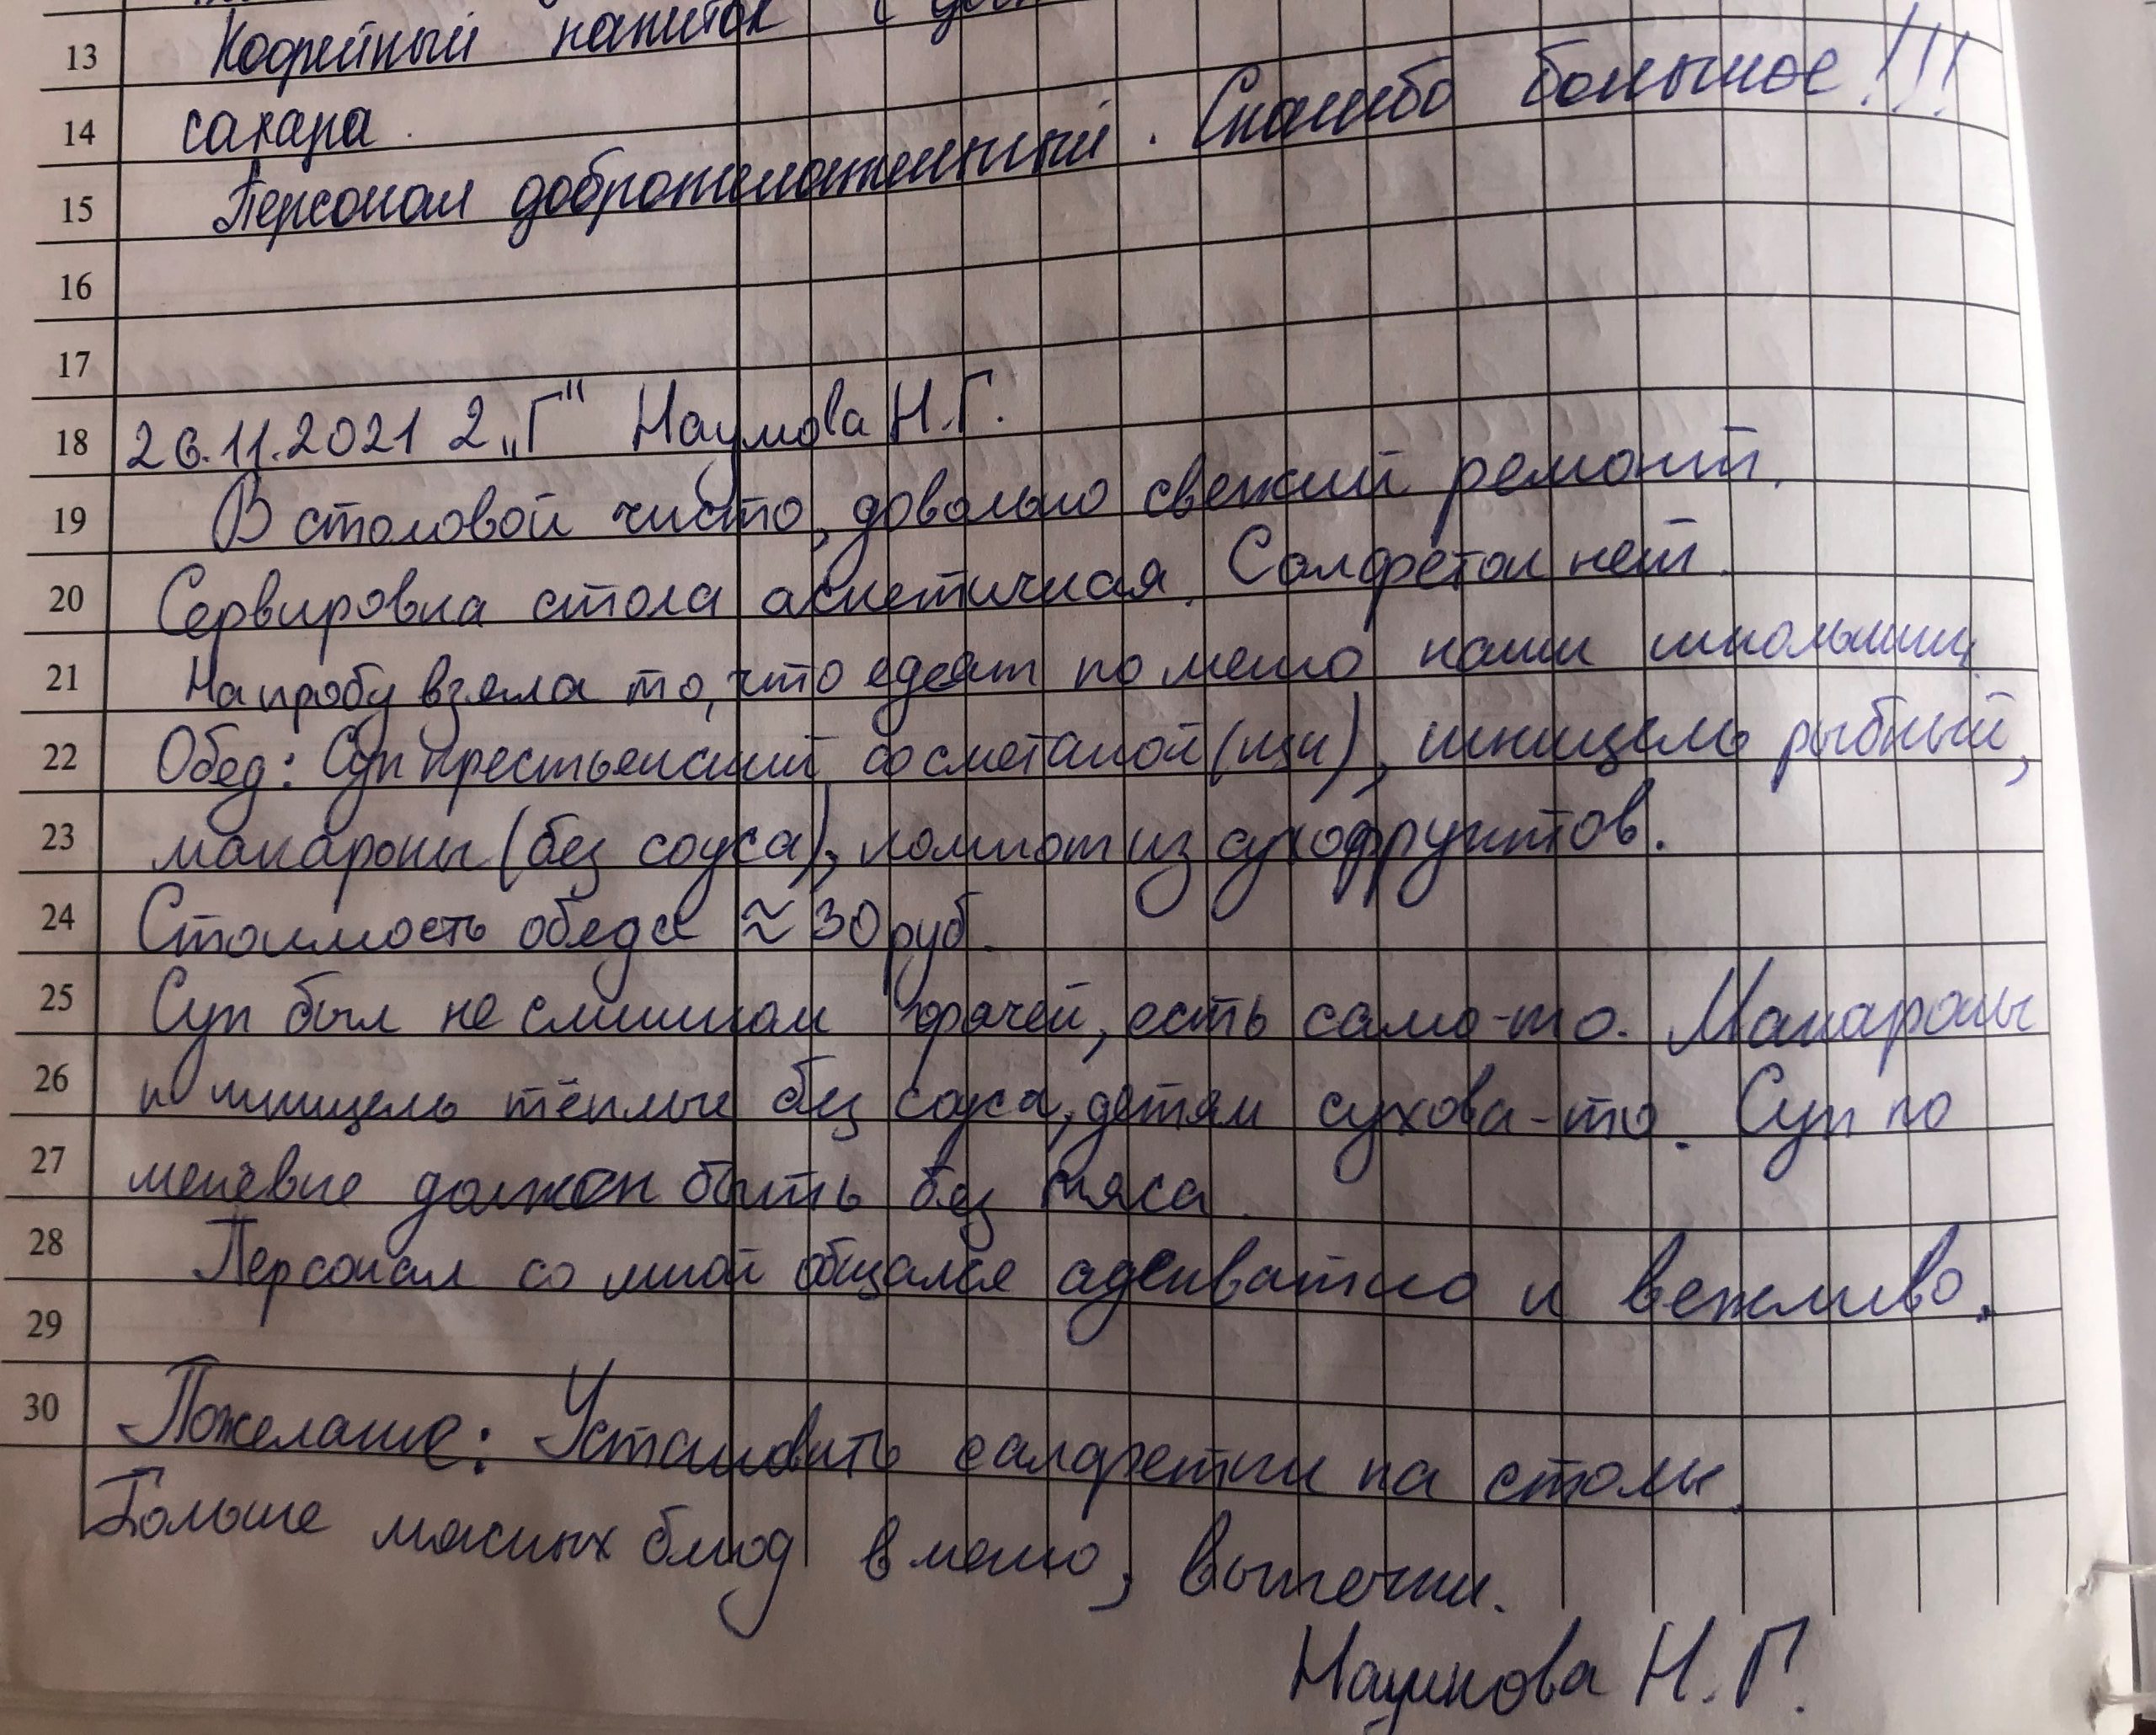 13 Кофейный напиток с
14 сахара.
15 Персонал доброжелательный. Спасибо большое!!!
16
17
18 26.11.2021 2„Г" Наумова Н.Г.
19 В столовой чисто, довольно свежий ремонт.
20 Сервировка стола аскетичная. Салфеток нет.
21 На пробу взяла то, что едят по меню наши школьники.
22 Обед: Суп крестьянский со сметаной (щи), шницель рыбный,
23 макароны (без соуса), компот из сухофруктов.
24 Стоимость обеда ≈ 30 руб.
25 Суп был не слишком горячей, есть само-то. Макароны
26 и шницель тёплые без соуса, детям сухова-то. Суп по
27 должен быть без мяса.
28 Персонал со мной общался адекватно и вежливо.
29
30 Пожелание: Установить салфетки на столы.
Больше мясных блюд в меню, выпечки.
Наумова Н.Г.